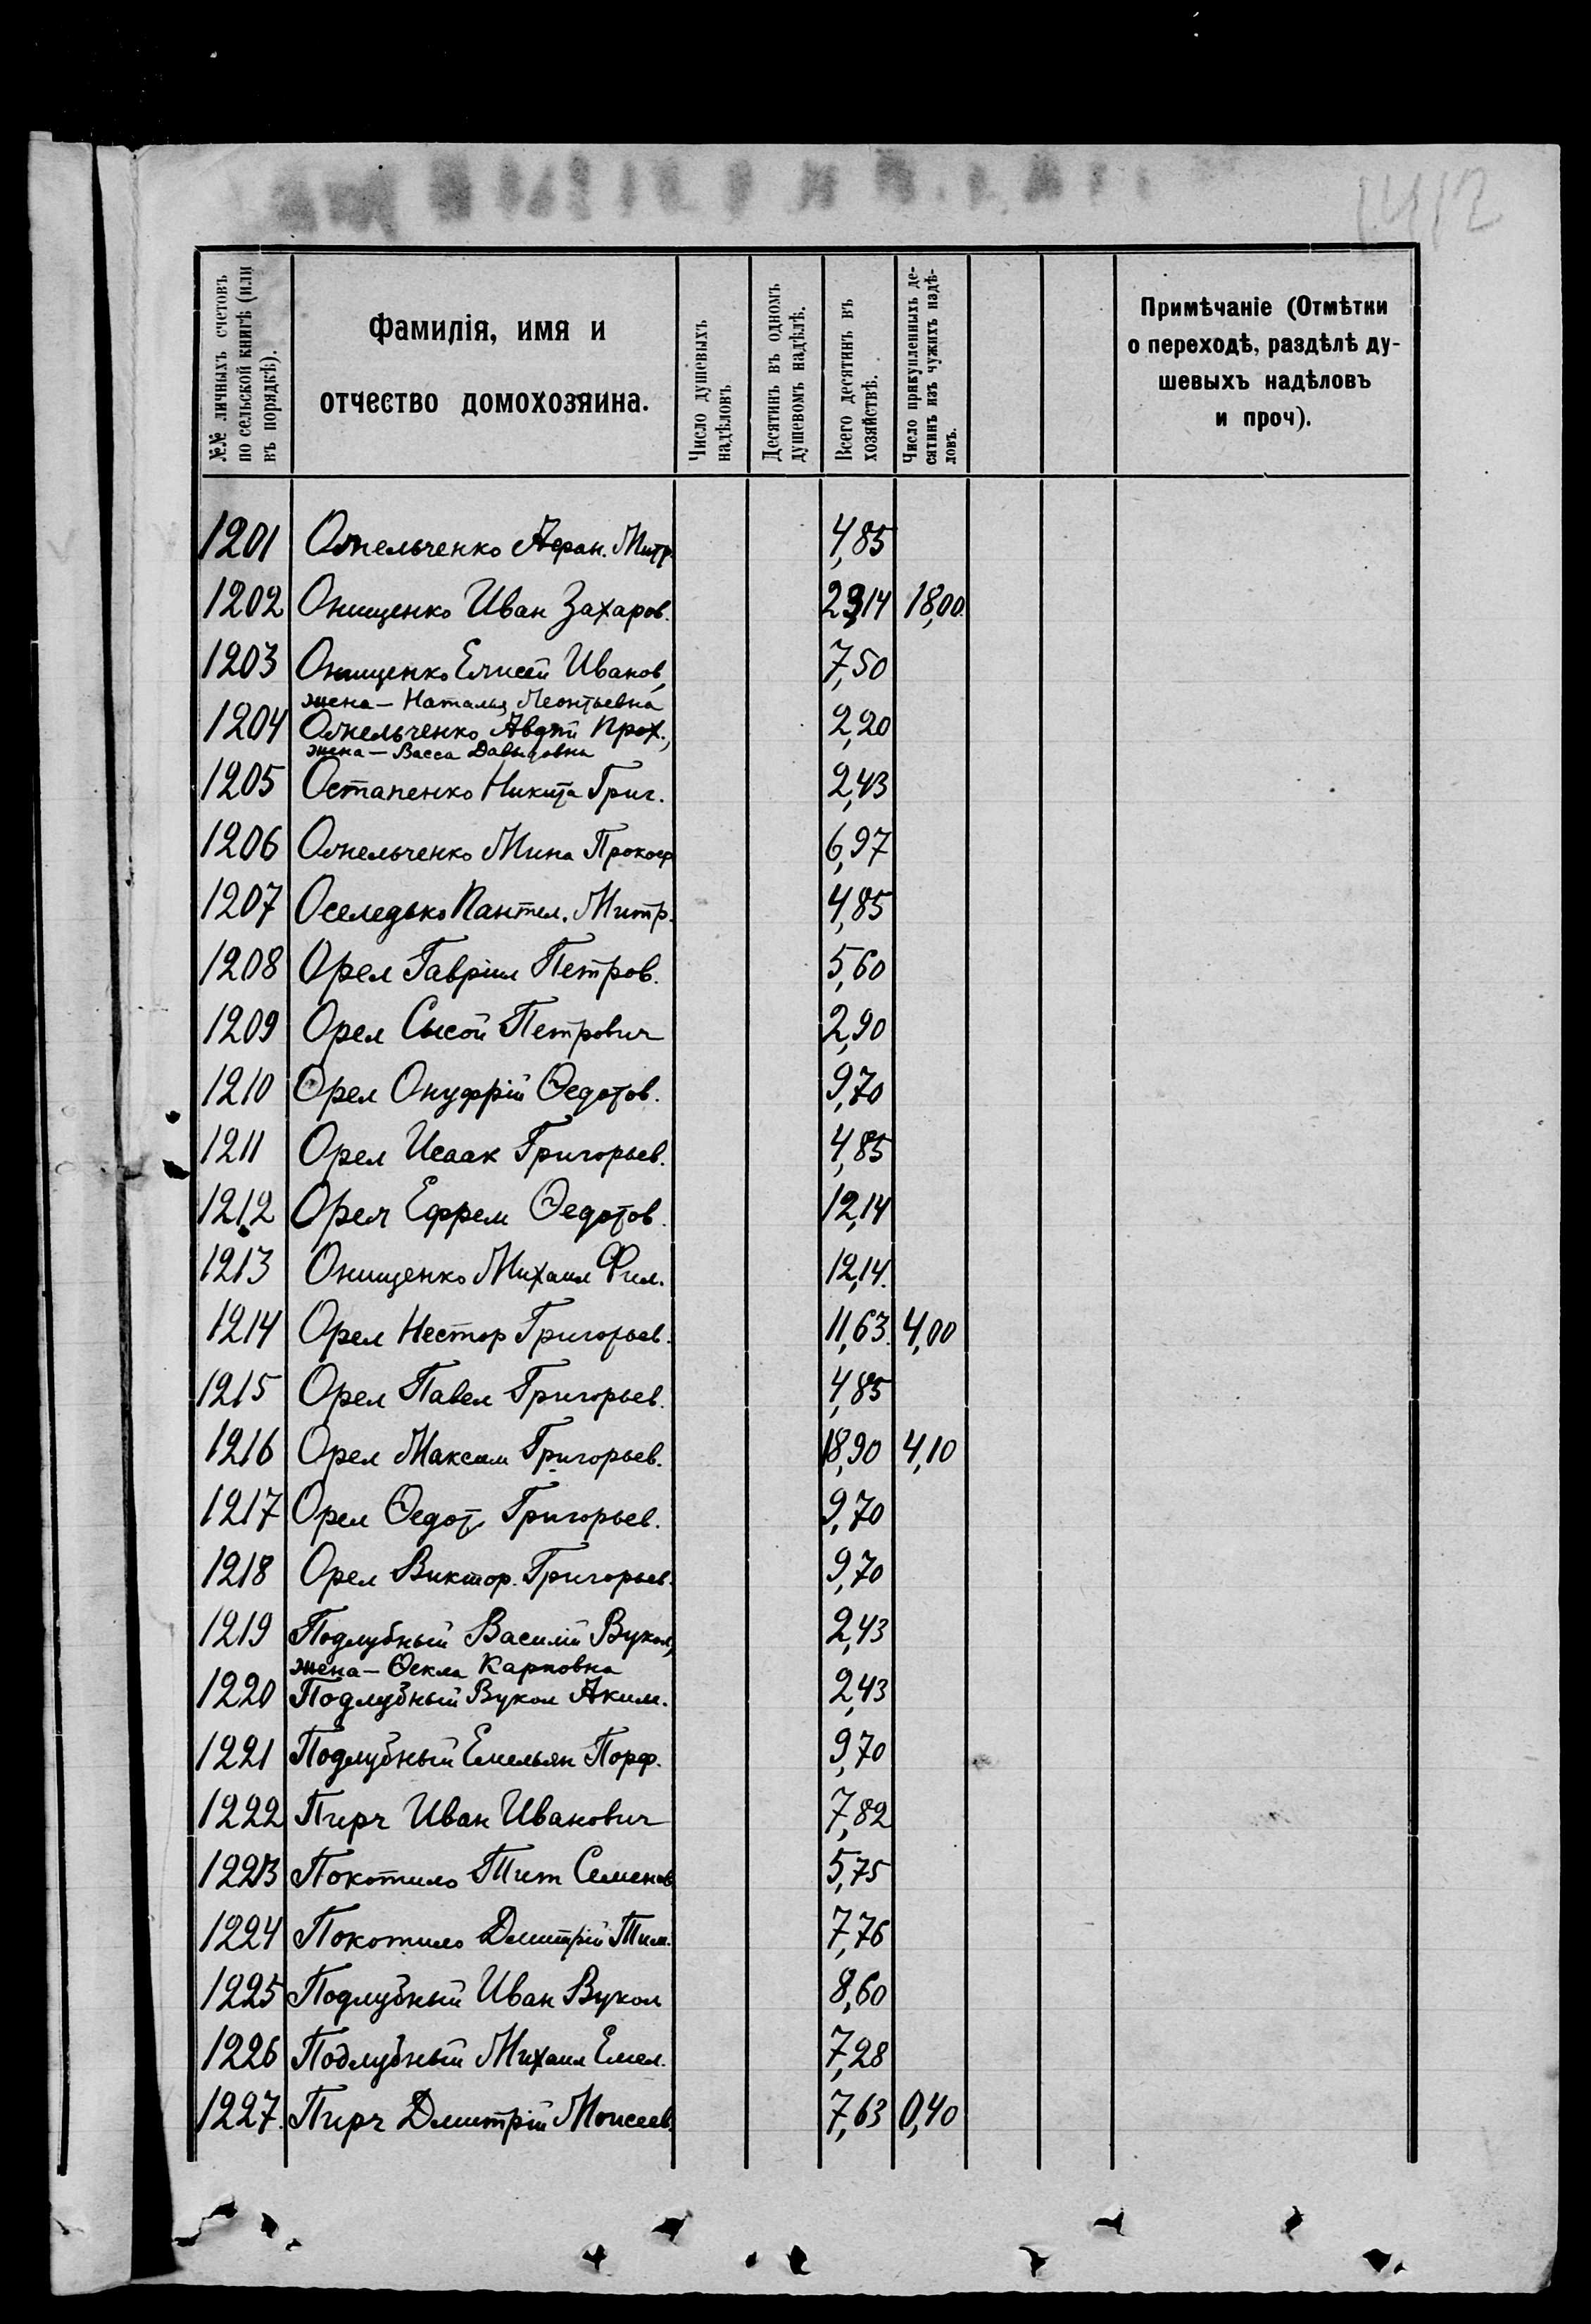 1412
№№ личныхъ счетовъ
по сельской книгѣ (или
въ порядкѣ).
Фамилія, имя и
отчество домохозяина.
Число душевыхъ
надѣловъ
Десятинъ въ одномъ
душевомъ надѣлѣ.
Всего десятинъ въ
хозяйствѣ.
Число прикупленныхъ де-
сятинъ изъ чужихъ надѣ-
ловъ.
Примѣчаніе (Отмѣтки
о переходѣ, раздѣлѣ ду-
шевыхъ надѣловъ
и проч).
1201 Омельченко Афан. Митр. 4,85
1202 Онищенко Иван Захаров. 29,14 18,00.
1203 Онищенко Елисей Иванов, 7,50
жена – Наталья Леонтьевна
1204 Омельченко Авдий Прох., 2,20
жена – Васса Давыдовна
1205 Остапенко Никита Григ. 2,43
1206 Омельченко Мина Прокоф 6,97
1207 Оселедько Пантел. Митр. 4,85
1208 Орел Гавріил Петров. 5,60
1209 Орел Сысой Петрович 2,90
1210 Орел Онуфрій Ѳедотов. 9,70
1211 Орел Исаак Григорьев. 4,85
1212 Орел Ефрем Ѳедотов. 12,14
1213 Онищенко Михаил Фил. 12,14.
1214 Орел Нестор Григорьев. 11,63. 4,00
1215 Орел Павел Григорьев. 4,85
1216 Орел Максим Григорьев. 18,90 4,10
1217 Орел Ѳедот Григорьев. 9,70
1218 Орел Виктор. Григорьев. 9,70
1219 Подлубный Василій Вукол, 2,43
жена – Ѳекла Карповна
1220 Подлубный Вукол Аким. 2,43
1221 Подлубный Емельян Порф. 9,70
1222 Пирч Иван Иванович 7,82
1223 Покотило Тит Семенов 5,75
1224 Покотило Дмитрій Тим. 7,76
1225 Подлубный Иван Вукол 8,60
1226 Подлубный Михаил Емел. 7,28
1227. Пирч Дмитрій Моисеев. 7,63 0,40